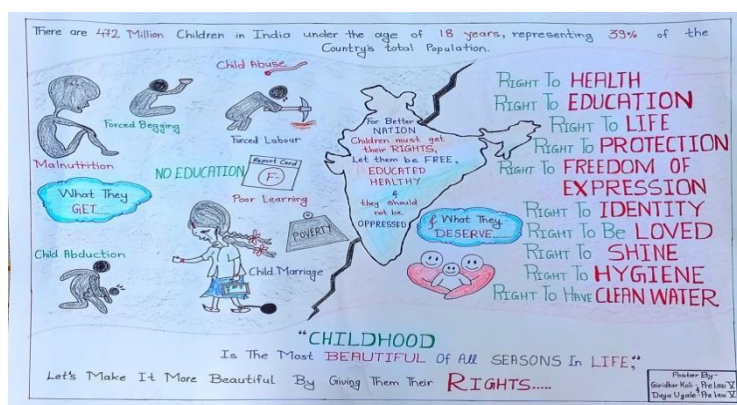 There are 472 Million Children in India under the age of 18 years, representing 39% of the
Country's total Population.
Child Abuse
Forced Begging
Forced Labour
Malnutrition
NO EDUCATION
Report Card
F-
Poor Learning
What They
GET.....
POVERTY
Child Abduction
Child Marriage
For Better
NATION
Children must get
their RIGHTS,
Let them be FREE,
EDUCATED
HEALTHY
&
they should
not be
OPPRESSED
& What They
DESERVE.....
RIGHT TO HEALTH
RIGHT TO EDUCATION
RIGHT TO LIFE
RIGHT TO PROTECTION
RIGHT TO FREEDOM OF
EXPRESSION
RIGHT TO IDENTITY
RIGHT TO Be LOVED
RIGHT TO SHINE
RIGHT TO HYGIENE
RIGHT TO HAVE CLEAN WATER
"CHILDHOOD
Is The Most BEAUTIFUL Of All SEASONS In LIFE,"
Let's Make It More Beautiful By Giving Them Their RIGHTS.....
Poster By-
Giridhar Koli - Pre Law V
&
Daya Ugale - Pre Law V